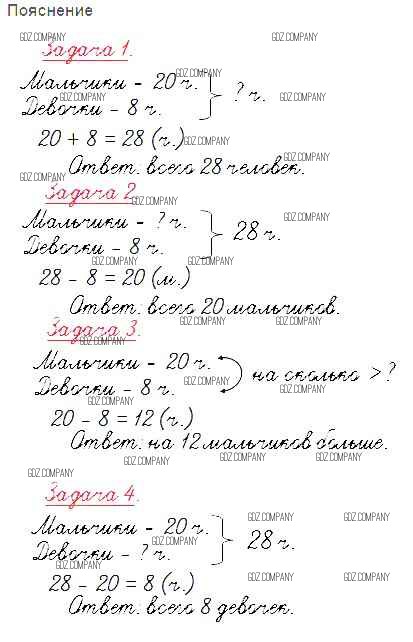 Пояснение
GDZ.COMPANY GDZ.COMPANY
Задача 1.
GDZ.COMPANY
Мальчики – 20 ч.
GDZ.COMPANY ? ч. GDZ.COMPANY
Девочки – 8 ч.
20 + 8 = 28 (ч.) GDZ.COMPANY
GDZ.COMPANY
Ответ. всего 28 человек.
GDZ.COMPANY
Задача 2
GDZ.COMPANY
Мальчики – ? ч. GDZ.COMPANY
28 ч.
Девочки – 8 ч.
GDZ.COMPANY GDZ.COMPANY
28 – 8 = 20 (м.)
Ответ. всего 20 мальчиков.
GDZ.COMPANY GDZ.COMPANY
Задача 3.
GDZ.COMPANY
Мальчики – 20 ч.
на сколько > ?
GDZ.COMPANY GDZ.COMPANY
Девочки – 8 ч.
GDZ.COMPANY
20 – 8 = 12 (ч.)
Ответ. на 12 мальчиков больше.
GDZ.COMPANY GDZ.COMPANY GDZ.COMPANY
GDZ.COMPANY
Задача 4.
GDZ.COMPANY GDZ.COMPANY
Мальчики – 20 ч.
GDZ.COMPANY 28 ч.
Девочки – ? ч.
GDZ.COMPANY
28 – 20 = 8 (ч.) GDZ.COMPANY GDZ.COMPANY
Ответ. всего 8 девочек.